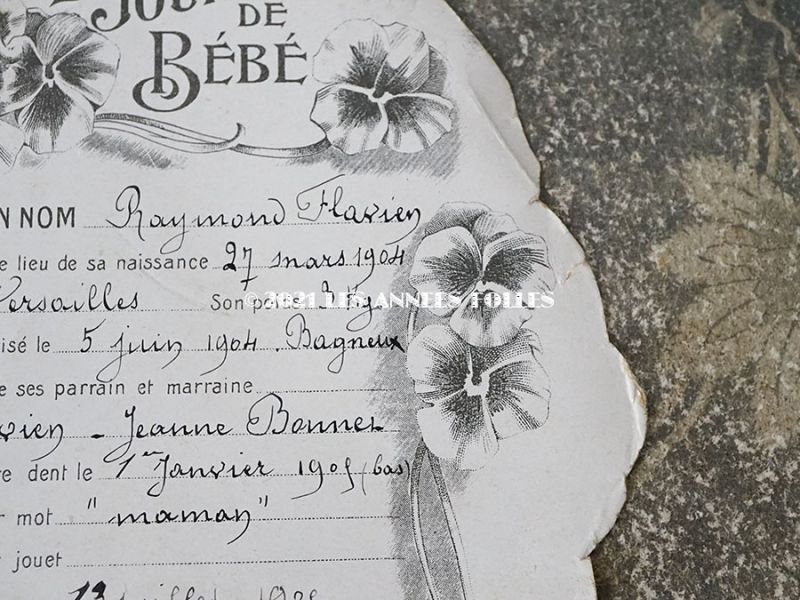 JOU
DE
BÉBÉ
N NOM Raymond Flavien
e lieu de sa naissance 27 mars 1904
Versailles Son poids 3 kg
©2021 LES ANNEES FOLLES
isé le 5 juin 1904. Bagneux
e ses parrain et marraine
vien - Jeanne Bonnet
re dent le 1er Janvier 1905 (bas)
r mot "maman"
r jouet
13 juillet 1905